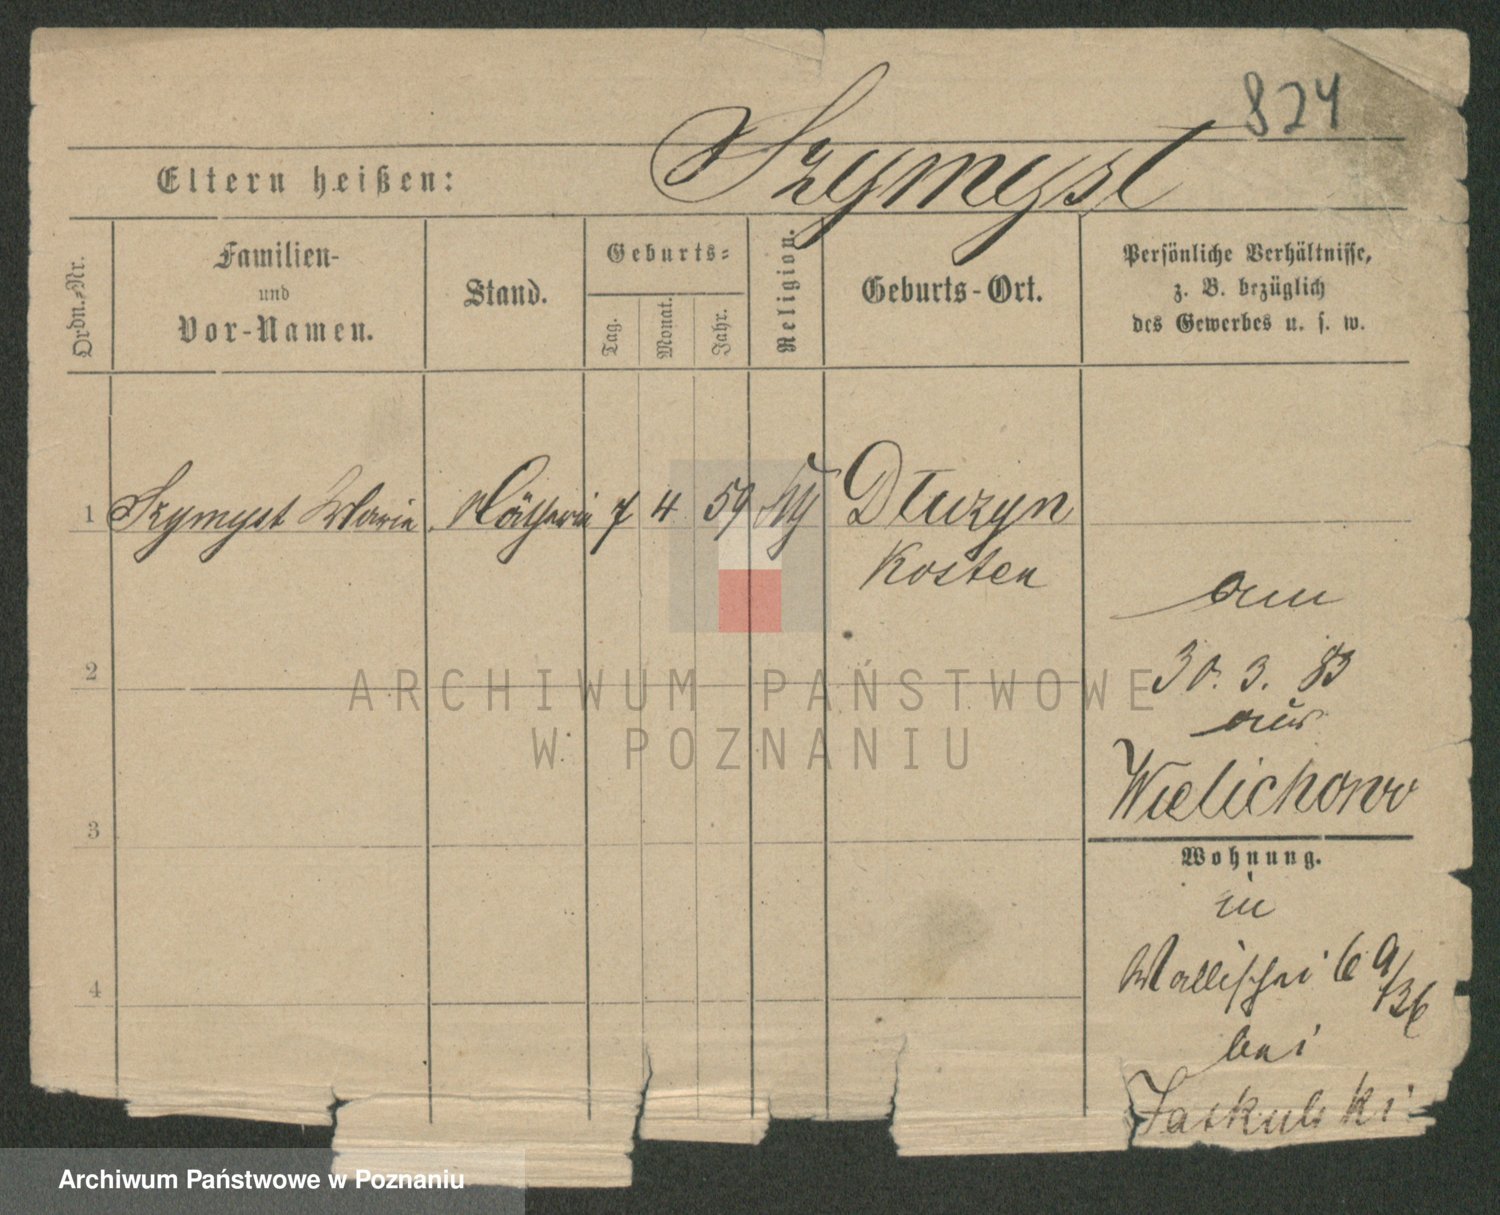 824
Szymyst
Eltern heißen:
Ordn.-Nr.
Familien-
und
Vor-Namen.
Stand.
Geburts-
Tag.
Monat.
Jahr.
Religion.
Geburts-Ort.
Persönliche Verhältnisse,
z. B. bezüglich
des Gewerbes u. s. w.
1 Szymyst Marie Näherin 7 4 59 Dłuzyn
Kosten
am
30. 3. 83
aus
Wielichowo
2
3
4
Wohnung.
in
Wallischei 69/36
bei
Jaskulski
ARCHIWUM PAŃSTWOWE
W POZNANIU
Archiwum Państwowe w Poznaniu